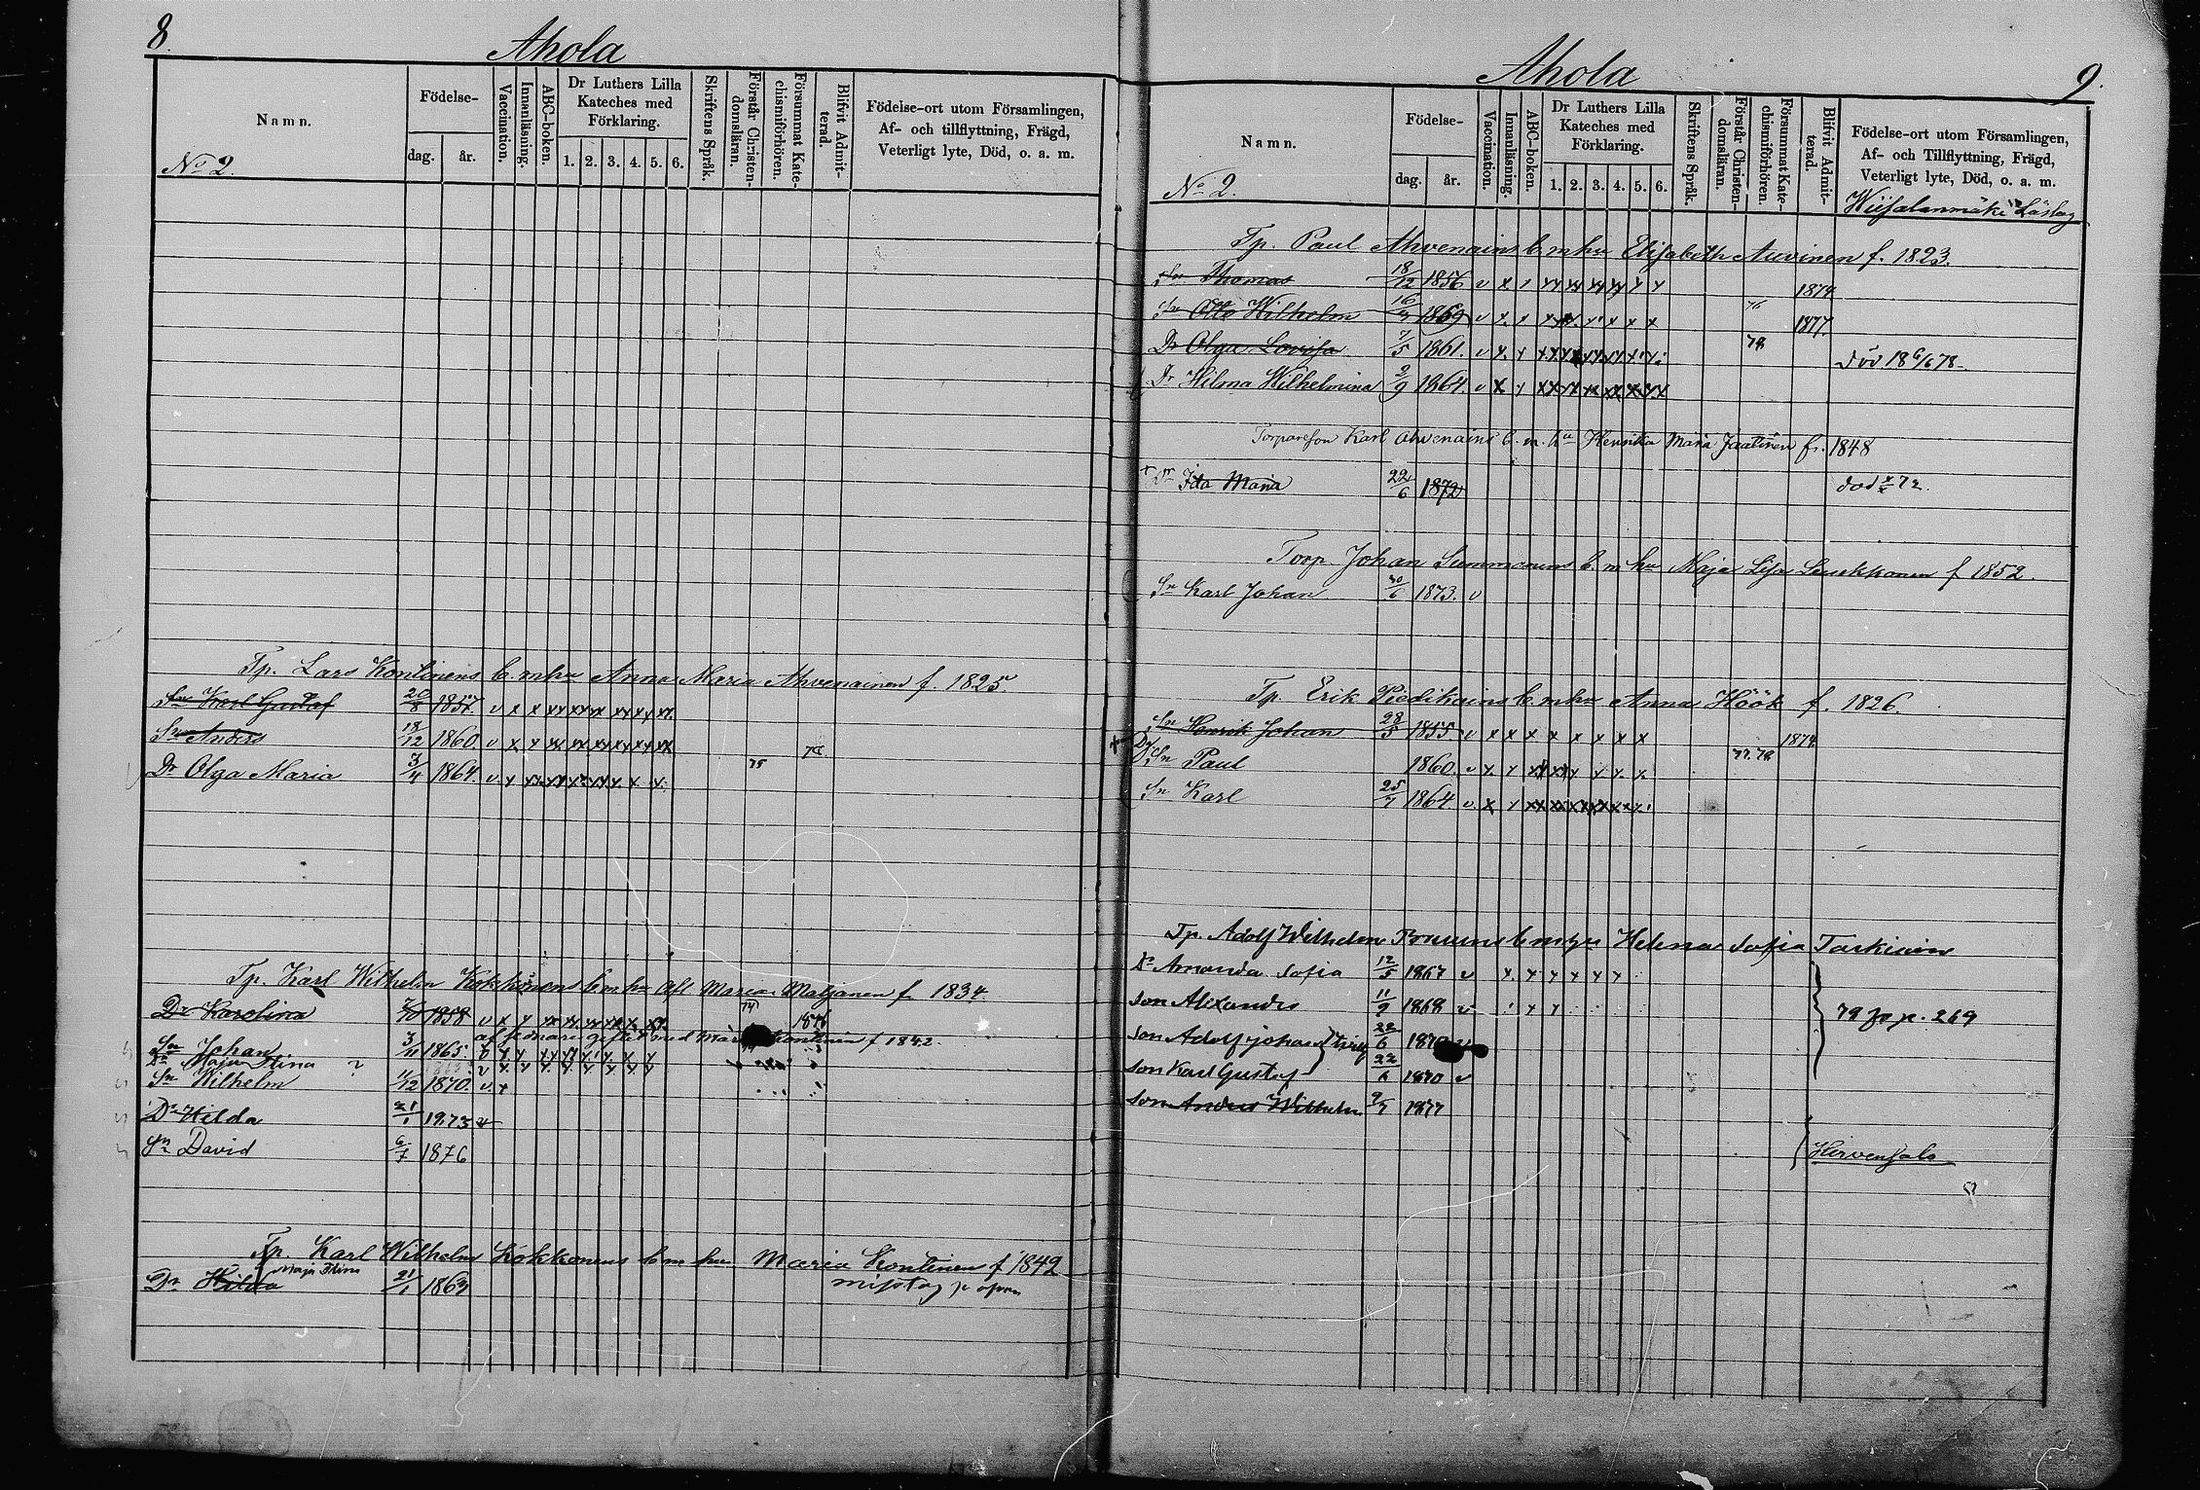 8.
Ahola
Namn.
Födelse-
dag. år.
Vaccination.
Innanläsning.
ABC-boken.
Dr Luthers Lilla Kateches med Förklaring.
1. 2. 3. 4. 5. 6.
Skriftens Språk.
Förstår Christendomsläran.
Försummat Katechismiförhören.
Blifvit Admitterad.
Födelse-ort utom Församlingen,
Af- och tillflyttning, Frägd,
Veterligt lyte, Död, o. a. m.
No 2.
Tp. Lars Kontinens b. m hu Anna Maria Ahvenainen f. 1825
Sn Karl Gustaf 20/8 1857. v x x xx xx x xx x xx
Sn Anders 18/12 1860. v x x
Dr Olga Maria 3/4 1864. v x 75
Tp. Karl Wilhelm Kokkonens b m hu Maria Matjanen f. 1834
Dr Karolina 1858 v x x 1876
f 1842.
Sn Johan 3/11 1865
Dr Maja Stina ?
Sn Wilhelm 11/12 1870. v x
Dr Hilda 21/1 1873 v
Sn David 6/7 1876
Tp Karl Wilhelm Kokkonens b m hu Maria Kontinen f 1842
Maja Stina
Dr Hilda 21/1 1863 misstag
Ahola
9.
Namn.
Födelse-
dag. år.
Vaccination.
Innanläsning.
ABC-boken.
Dr Luthers Lilla Kateches med Förklaring.
1. 2. 3. 4. 5. 6.
Skriftens Språk.
Förstår Christendomsläran.
Försummat Katechismiförhören.
Blifvit Admitterad.
Födelse-ort utom Församlingen,
Af- och Tillflyttning, Frägd,
Veterligt lyte, Död, o. a. m.
No 2.
Wiisalanmäki Läslag
Tp. Paul Ahvenains b. m hu Elisabeth Auvinen f. 1823.
Sn Thomas 18/12 1856 v x 1874
Sn Otto Wilhelm 1859 v x x 76 1877.
Dr Olga Lovisa 7/5 1861. v x. x 78 död 18 6/6 78.
Dr Hilma Wilhelmina 2/9 1864. v x x
Torpareson Karl Ahvenains b. m. hu Henrika Maria Jaatinen f. 1848
Dr Ida Maria 22/6 1872 död 72.
Torp. Johan Summanens b. m hu Maja Lisa Leukkonen f 1852.
Sn Karl Johan 30/6 1873. v
Tp. Erik Piedikains b. m hu Anna Höök f. 1826.
Sn Henrik Johan 28/5 1855 v x x x x x x x x 1874
Sn Paul 1860. v x. 77. 78
Sn Karl 25/7 1864 v. x
Tp. Adolf Wilhelm b m hu Helena Sofia Tarkiain
Dr Amanda Sofia 12/5 1867 v x. x x x x x
son Alexander 11/9 1868 v
79 fr p. 269
son Adolf Johan 22/6 1870 v
son Karl Gustaf 22/6 1870 v
son Anders Wilhelm 9/7 1877
Hirvensalo